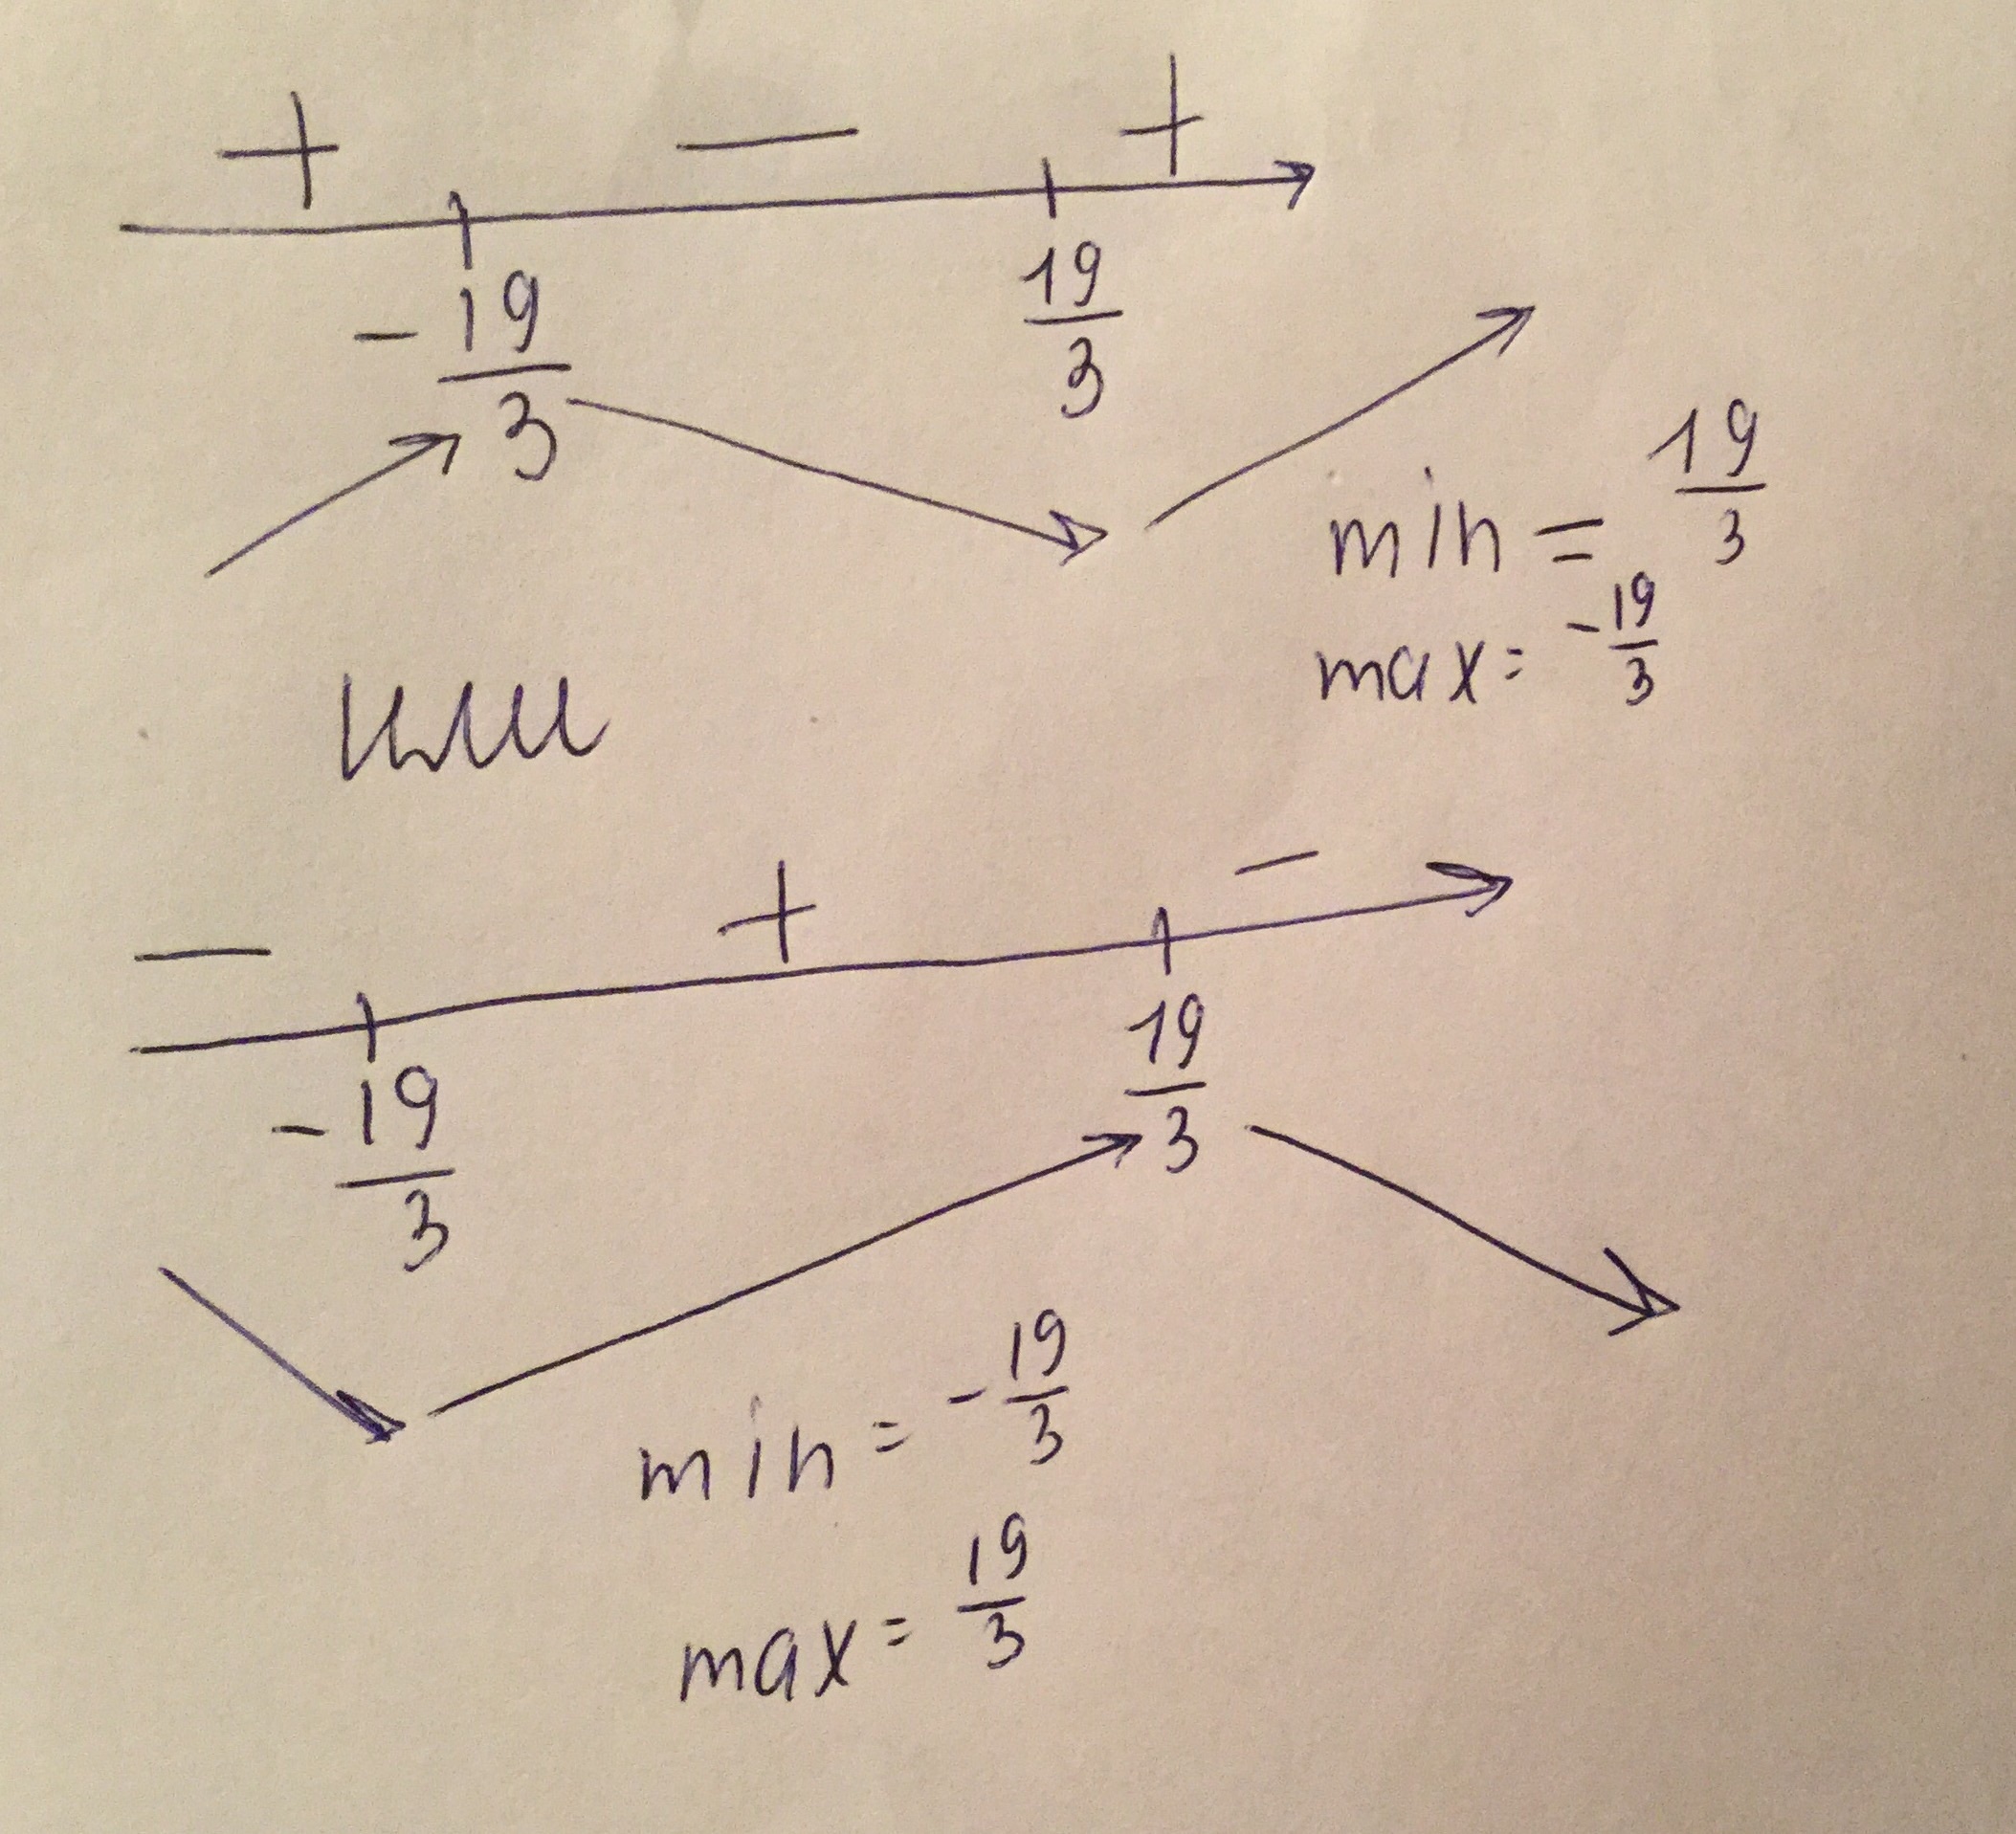 + — +
-19/3 19/3
min = 19/3
max = -19/3
или
— + —
-19/3 19/3
min = -19/3
max = 19/3